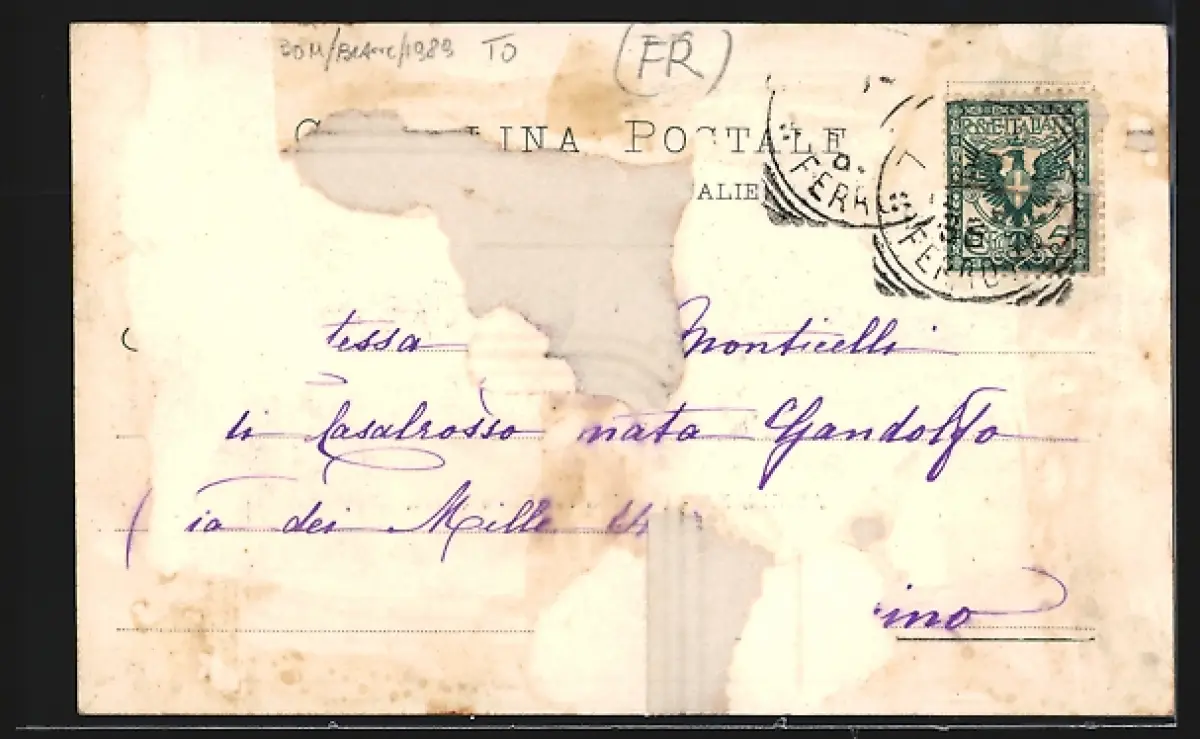 TO (FR)
LINA POSTALE
ALIE
POSTE ITALIANE
FERR
FERRO
5
tessa Monticelli
di Casalrosso nata Gandolfo
ia dei Mille 44
ino